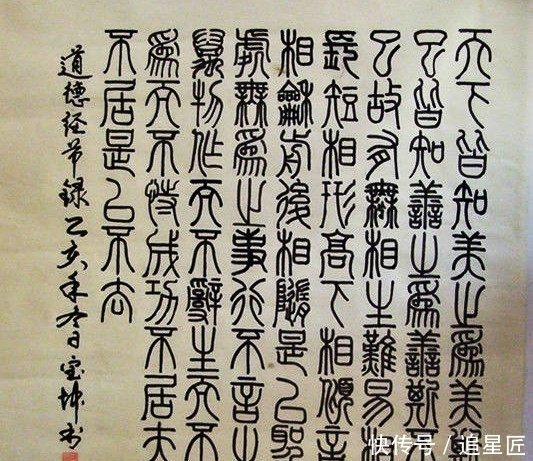 天下皆知美之為美斯
已皆知善之為善斯不
已故有無相生難易相
長短相形高下相傾音
相龢前後相隨是以聖
處無為之事行不言之
萬物作而不辭生而不
為而不恃成功不居夫
不居是以不去
道德经节録 乙亥年冬日 宝坤书
快传号／追星匠